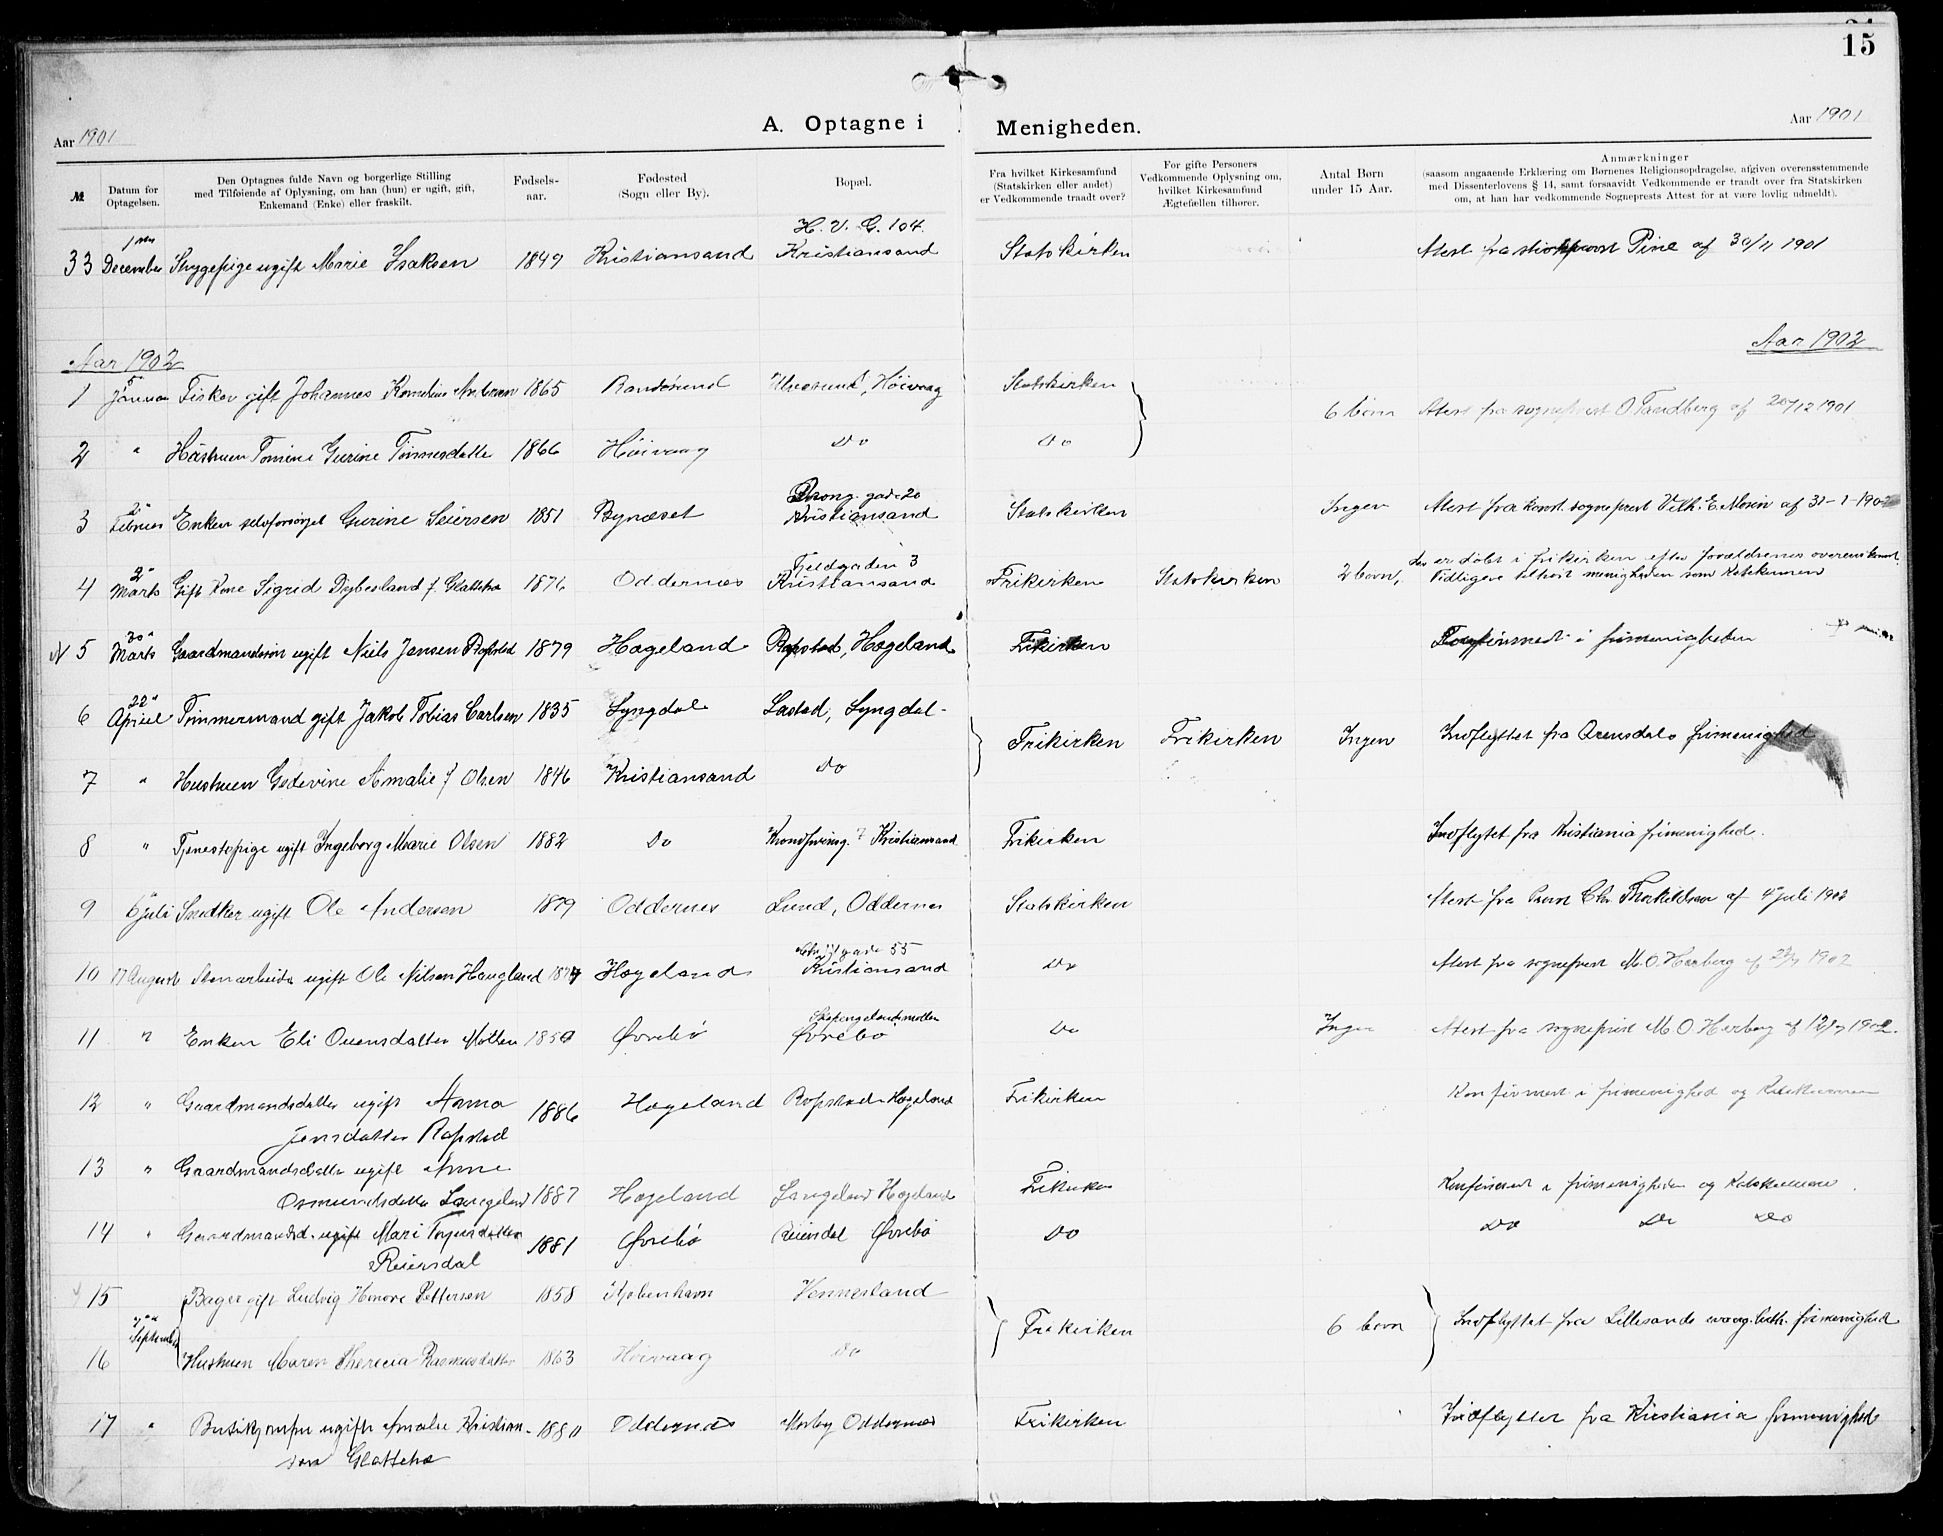 15
A. Optagne i Menigheden.
Aar 1901
Aar 1901
№
Datum for Optagelsen.
Den Optagnes fulde Navn og borgerlige Stilling
med Tilføiende af Oplysning, om han (hun) er ugift, gift,
Enkemand (Enke) eller fraskilt.
Fødsels-
aar.
Fødested
(Sogn eller By).
Bopæl.
Fra hvilket Kirkesamfund
(Statskirken eller andet)
er Vedkommende traadt over?
For gifte Personers
Vedkommende Oplysning om,
hvilket Kirkesamfund
Ægtefællen tilhører.
Antal Børn
under 15 Aar.
Anmærkninger
(saasom angaaende Erklæring om Børnenes Religionsopdragelse, afgiven overensstemmende
med Dissenterlovens § 14, samt forsaavidt Vedkommende er traadt over fra Statskirken
om, at han har vedkommende Sogneprests Attest for at være lovlig udmeldt).
H. V. G. 104.
33 December Strygepige ugift Marie Isaksen 1849 Kristiansand Kristiansand Statskirken Attest fra Pine af 30/11 1901
Aar 1902
Aar 1902
1 Januar Fisker gift Johannes Kornelius Andersen 1865 Randøsund Ulvøsund, Høivaag Statskirken 6 børn Attest fra sogneprest O Tandberg af 20/12 1901
2 " Hustruen Tomine Gurine Tønnesdatter 1866 Høivaag Do Do
Drong. gade 20
3 Februar Enken selvforsørget Gurine Seiersen 1851 Bynæset Kristiansand Statskirken Ingen Attest fra konst. sogneprest Vilh. E. af 31-1-1902
Fjeldgaden 3
der er døbt i frikirken efter forældrenes overenskomst.
4 2" Marts Gift Kone Sigrid Dybesland f. Glattetra 1876 Oddernæs Kristiansand Frikirken Statskirken 2 børn, Tidligere tilhørt menigheden som Katekumen
N 5 30" Marts Gaardmandssøn ugift Niels Jensen Ropstad 1879 Hægeland Ropstad, Hægeland Frikirken Konfirmert i frimenigheden
6 22" April Tømmermand gift Jakob Tobias Carlsen 1835 Lyngdal Lastad, Lyngdal Frikirken Frikirken Ingen Indflyttet fra Arendals frimenighed
7 " Hustruen Amalie f Olsen 1846 Kristiansand Do
8 " Tjenestepige ugift Ingeborg Marie Olsen 1882 Do 7 Kristiansand Frikirken Indflyttet fra Kristiania frimenighed.
9 6 Juli Snedker ugift Ole Andersen 1879 Oddernes Lund, Oddernes Statskirken Attest fra Provst Chr. Thorkildsen af 4 Juli 1902
gade 55
10 17 August Stenarbeider ugift Ole Nilsen Haugland Hægeland Kristiansand Do Attest fra sogneprest M. O. Herberg af 1902
11 " Enken Eli Ouensdatter Øvrebø Øvrebø Do Ingen Attest fra sogneprest M O Herberg af 12/7 1902.
12 " Gaardmandsdatter ugift Anna 1886 Hægeland Ropstad Hægeland Frikirken Konfirmert i frimenighed og Katekumen
Jensdatter Ropstad
13 " Gaardmandsdatter ugift Anne
Osmundsdatter Langeland 1887 Hægeland Langeland Hægeland Frikirken Konfirmert i frimenigheden og Katekumen.
14 " Gaardmandsd. ugift Mari 1881 Øvrebø Reiersdal Øvrebø Do Do Do Do
Reiersdal
15 Bager gift Ludvig Honore Pettersen 1858 Kjøbenhavn Vennesland Frikirken 6 børn Indflyttet fra Lillesands evang. luth. frimenighed
September
16 Hustruen Maren Therecia Rasmusdatter 1863 Høivaag Do
17 " Butikjomfru ugift Amalie Kristian- 1880 Oddernæs Mosby Oddernæs Frikirken Indflyttet fra Kristiania frimenighed
sen Glattetra